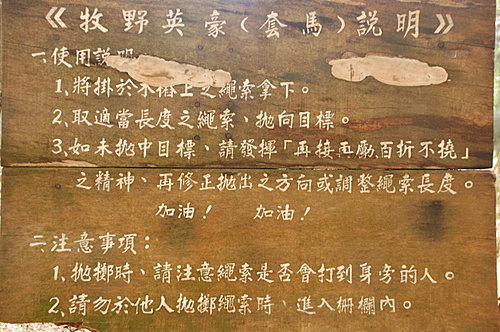 《牧野英豪(套馬)説明》
一、使用說明
1、將掛於木樁上之繩索拿下。
2、取適當長度之繩索、拋向目標。
3、如未拋中目標、請發揮「再接再厲、百折不撓」
之精神、再修正拋出之方向或調整繩索長度。
加油! 加油!
二、注意事項:
1、拋擲時、請注意繩索是否會打到身旁的人。
2、請勿於他人拋擲繩索時、進入柵欄內。